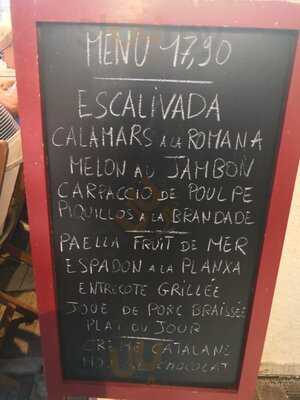 MENU 17,90
ESCALIVADA
CALAMARS A LA ROMANA
MELON AU JAMBON
CARPACCIO DE POULPE
PIQUILLOS A LA BRANDADE
PAELLA FRUIT DE MER
ESPADON A LA PLANXA
ENTRECOTE GRILLÉE
JOUE DE PORC BRAISSÉE
PLAT DU JOUR
CREME CATALANE
CHOCOLAT